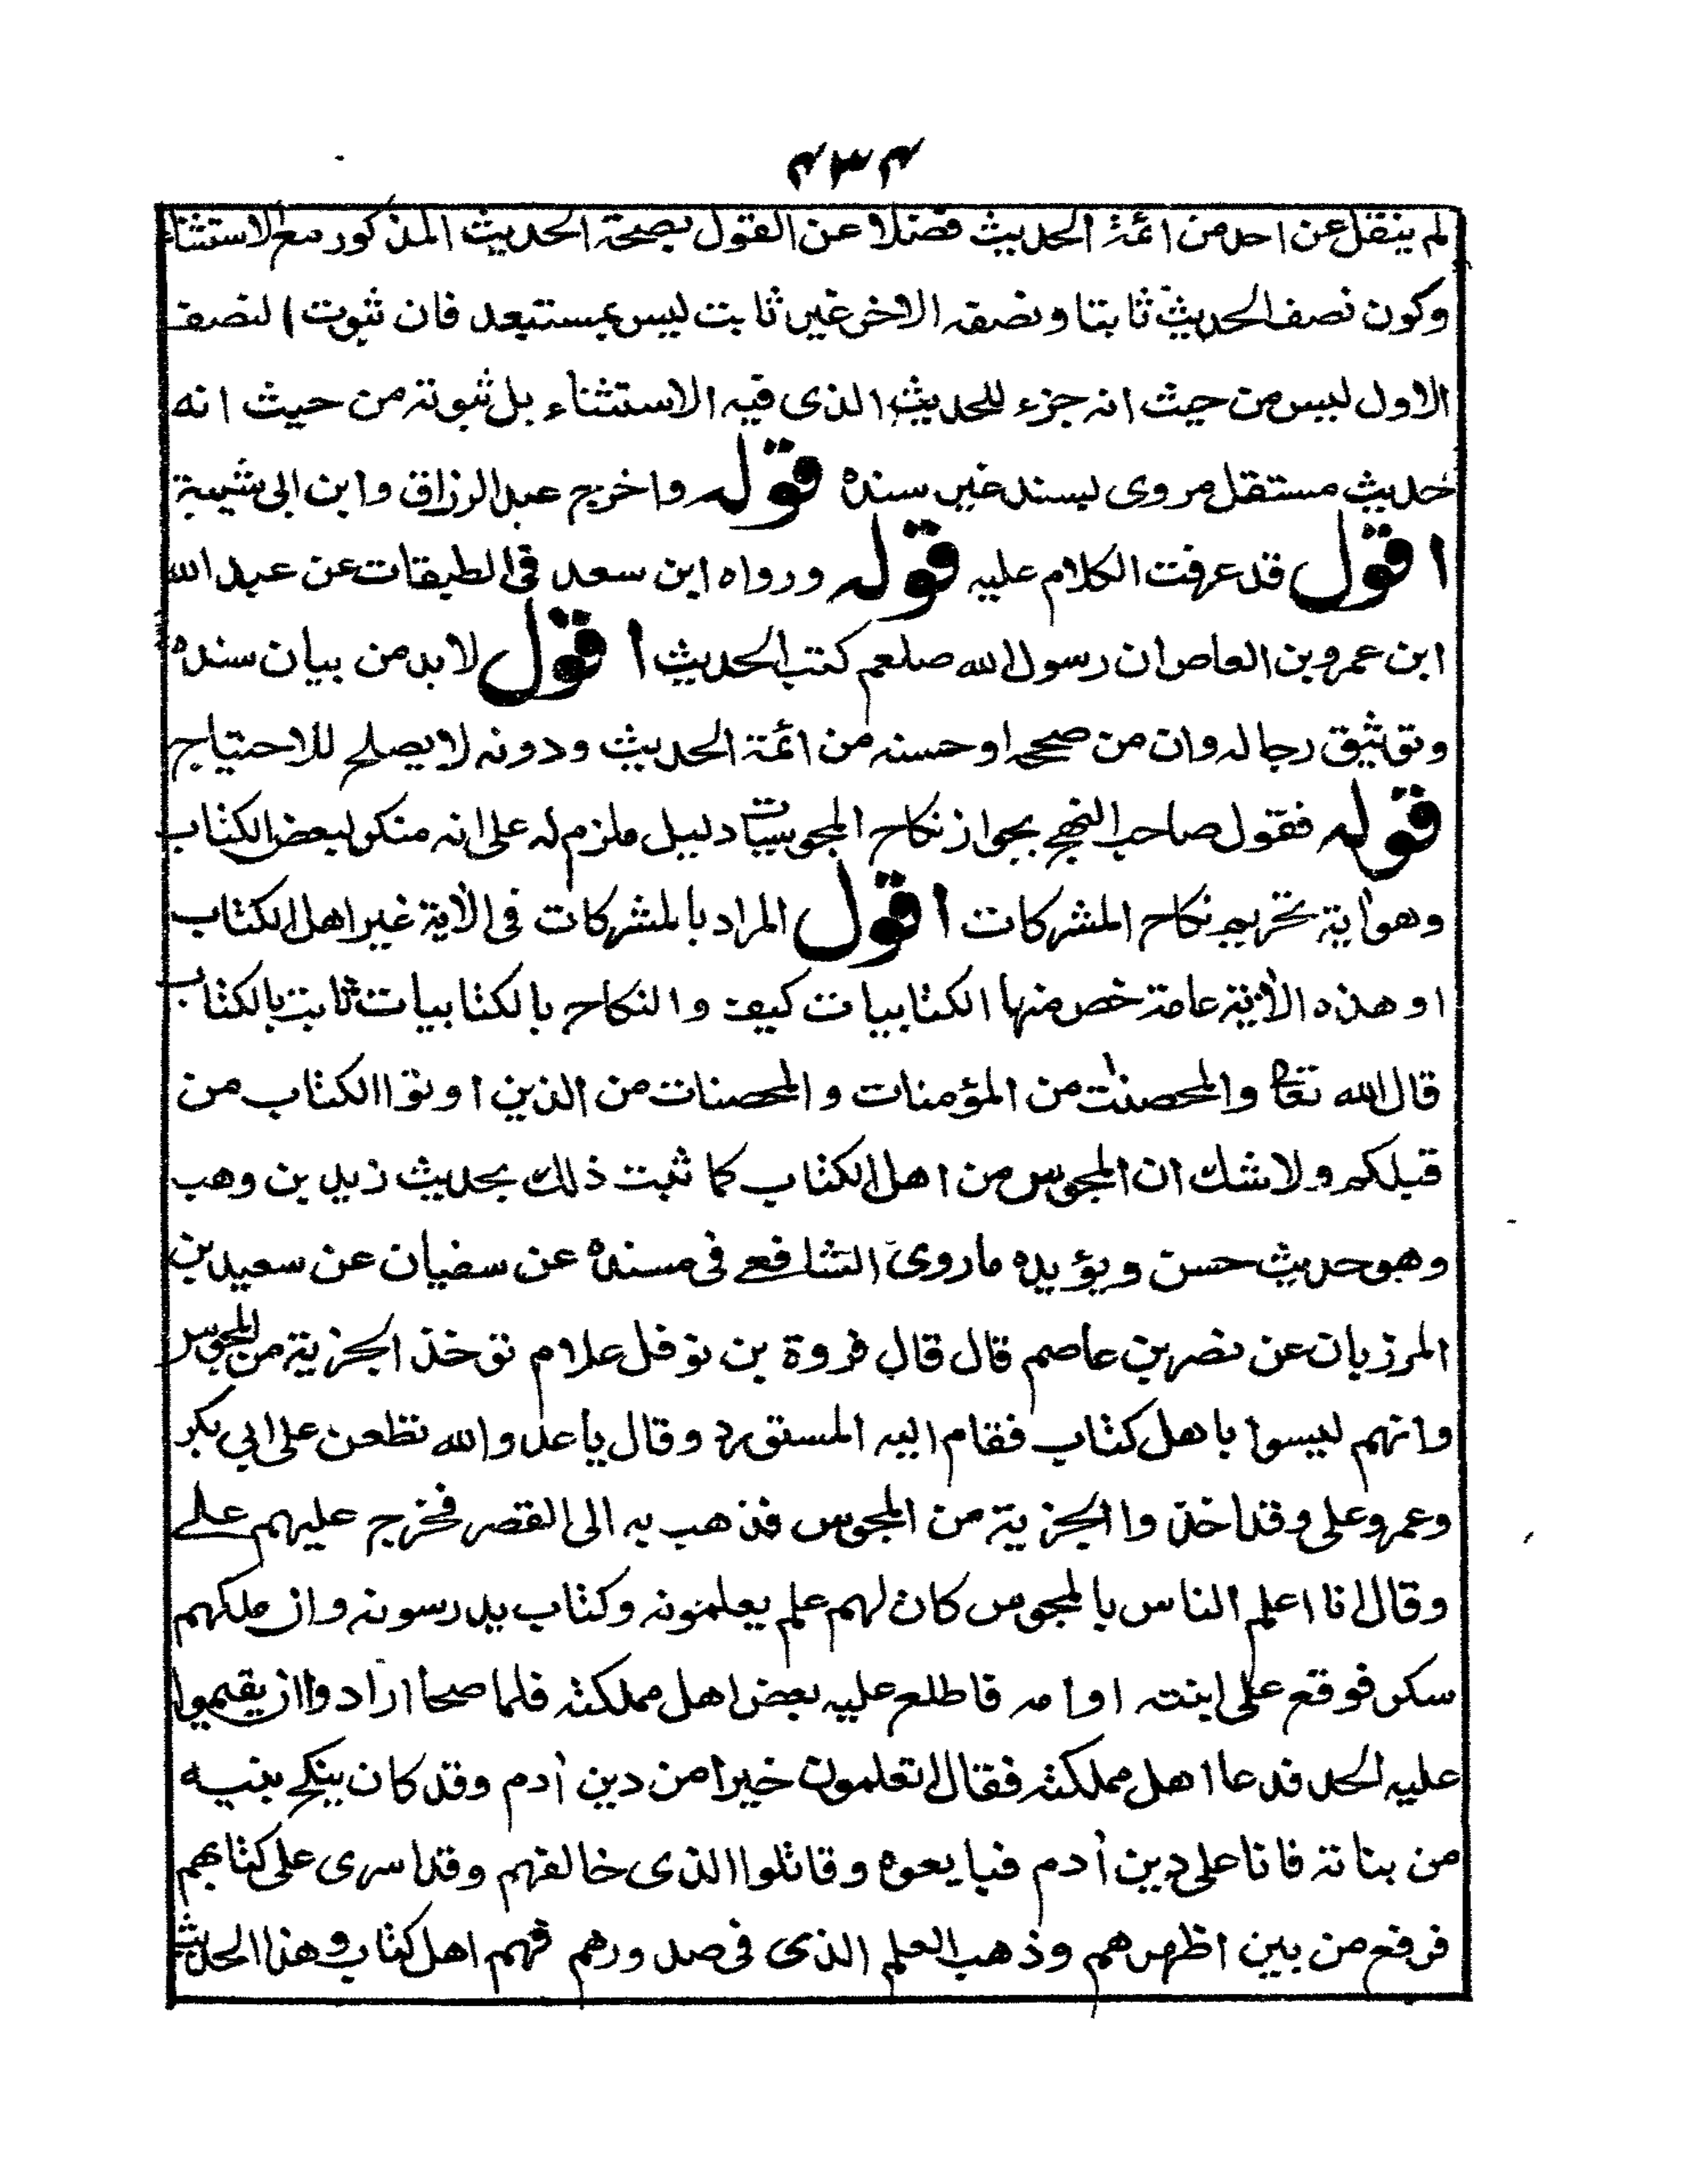 لم ينقل عن احد من ائمة الحديث فضلا عن القول بصحة الحديث المذكور مع الاستثناء
وكون نصف الحديث ثابتا ونصفه الاخر غير ثابت ليس بمستبعد فان ثبوت النصف
الاول ليس من حيث انه جزء للحديث الذى فيه الاستثناء بل ثبوته من حيث انه
حديث مستقل مروى بسند غير سنده قوله واخرج عبد الرزاق وابن ابى شيبة
اقول قد عرفت الكلام عليه قوله ورواه ابن سعد فى الطبقات عن عبد الله
ابن عمرو بن العاص ان رسول الله صلعم كتب الحديث اقول لا بد من بيان سنده
وتوثيق رجاله وان من صححه او حسنه من ائمة الحديث ودونه لا يصلح للاحتياج
قوله فقول صاحب النهج بجواز نكاح المجوسيات دليل ملزم له على انه منكر لبعض الكتاب
وهو اٰية تحريم نكاح المشركات اقول المراد بالمشركات فى الاٰية غير اهل الكتاب
او هذه الاٰية عامة خص منها الكتابيات كيف والنكاح بالكتابيات ثابت بالكتاب
قال الله تعا والمحصنٰت من المؤمنات والمحصنات من الذين اوتوا الكتاب من
قبلكم ولا شك ان المجوس من اهل الكتاب كما ثبت ذلك بحديث زيد بن وهب
وهو حديث حسن ويؤيده ما روى الشافعے فى مسنده عن سفيان عن سعيد بن
المرزبان عن نصر بن عاصم قال قال فروة بن نوفل علام توخذ الجزية من المجوس
وانهم ليسوا باهل كتاب فقام اليه المستورد وقال يا عدو الله تطعن على ابي بكر
وعمر وعلى وقد اخذوا الجزية من المجوس فذهب به الى القصر فخرج عليهم علے
وقال انا اعلم الناس بالمجوس كان لهم علم يعلمونه وكتاب يدرسونه وان ملكهم
سكر فوقع على ابنته او امه فاطلع عليه بعض اهل مملكته فلما صحا ارادوا ان يقيموا
عليه الحد فدعا اهل مملكته فقال اتعلمون خيرا من دين اٰدم وقد كان ينكح بنيه
من بناته فانا على دين اٰدم فبايعوه وقاتلوا الذى خالفهم وقد اسرى على كتابهم
فرفع من بين اظهرهم وذهب العلم الذى فى صدورهم فهم اهل كتاب وهذا الحديث